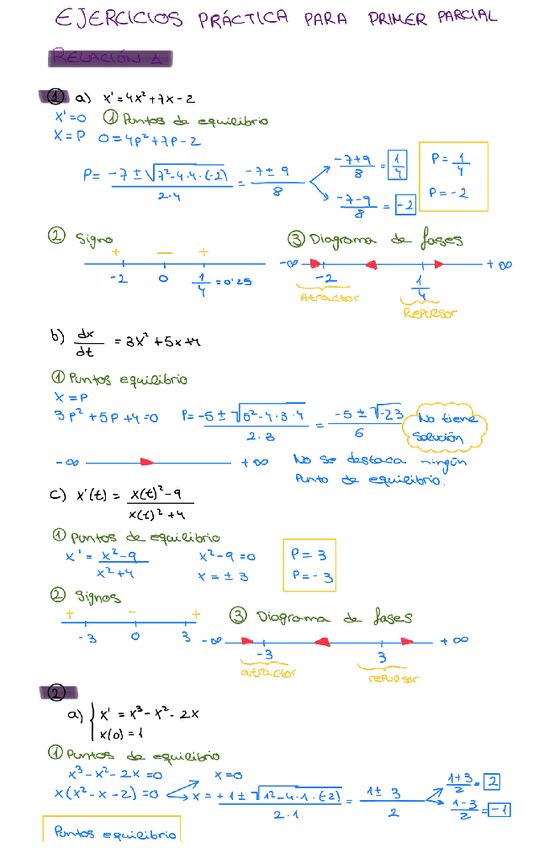 EJERCICIOS PRÁCTICA PARA PRIMER PARCIAL
RELACIÓN 1
① a) x' = 4x² + 7x - 2
x' = 0 ① Puntos de equilibrio
x = P 0 = 4P² + 7P - 2
P = -7 ± √7² - 4·4·(-2) / 2·4 = -7 ± 9 / 8
-7+9 / 8 = 1/4
-7-9 / 8 = -2
P = 1/4
P = -2
② Signo
+ — +
-2 0 1/4 = 0'25
③ Diagrama de fases
-∞ -2 1/4 +∞
Atractor Repulsor
b) dx/dt = 3x² + 5x + 4
① Puntos equilibrio
x = P
3P² + 5P + 4 = 0 P = -5 ± √5² - 4·3·4 / 2·3 = -5 ± √-23 / 6
No tiene
solución
-∞ +∞
No se destaca ningún
Punto de equilibrio.
c) x'(t) = x(t)² - 9 / x(t)² + 4
① Puntos de equilibrio
x' = x² - 9 / x² + 4
x² - 9 = 0
x = ± 3
P = 3
P = -3
② Signos
+ - +
-3 0 3
③ Diagrama de fases
-∞ -3 3 +∞
atractor repulsor
②
a) { x' = x³ - x² - 2x
x(0) = 1
① Puntos de equilibrio
x³ - x² - 2x = 0
x(x² - x - 2) = 0
x = 0
x = +1 ± √1² - 4·1·(-2) / 2·1 = 1 ± 3 / 2
1+3 / 2 = 2
1-3 / 2 = -1
Puntos equilibrio